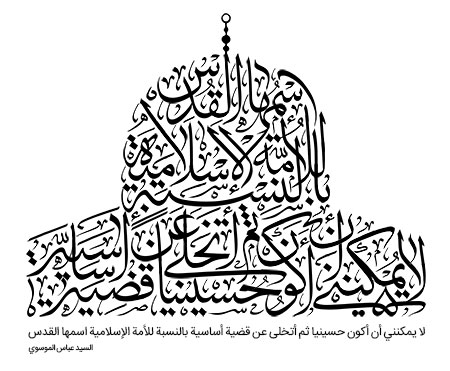 لا يمكنني أن أكون حسينيا ثم أتخلى عن قضية أساسية
بالنسبة
للأمة الإسلامية
اسمها القدس
لا يمكنني أن أكون حسينيا ثم أتخلى عن قضية أساسية بالنسبة للأمة الإسلامية اسمها القدس
السيد عباس الموسوي